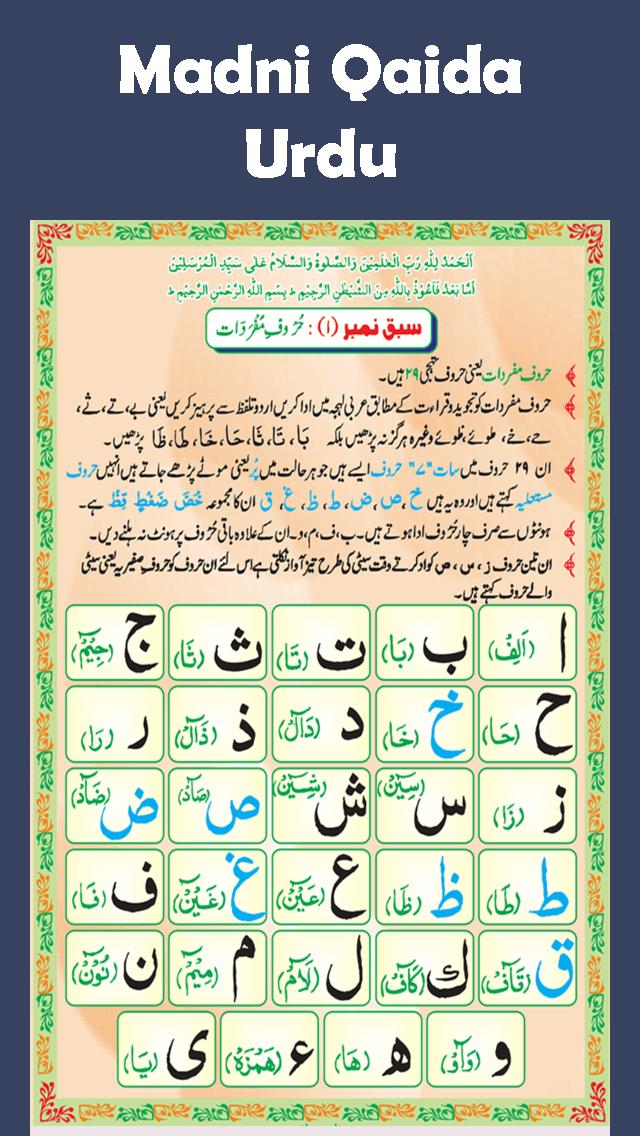 Madni Qaida
Urdu
اَلْحَمْدُ لِلّٰهِ رَبِّ الْعٰلَمِيْنَ وَالصَّلٰوةُ وَالسَّلَامُ عَلٰى سَيِّدِ الْمُرْسَلِيْنَ
اَمَّا بَعْدُ فَاَعُوْذُ بِاللّٰهِ مِنَ الشَّيْطٰنِ الرَّجِيْمِ ط بِسْمِ اللّٰهِ الرَّحْمٰنِ الرَّحِيْمِ ط
سبق نمبر (۱) : حُرُوفِ مُفْرَدَات
حروف مفردات یعنی حروف تہجی ۲۹ ہیں۔
حروف مفردات کو تجوید و قراءت کے مطابق عربی لہجہ میں ادا کریں اردو تلفظ سے پرہیز کریں یعنی بے، تے، ثے،
حے، خے، طوئے، ظوئے وغیرہ ہرگز نہ پڑھیں بلکہ بَا، تَا، ثَا، حَا، خَا، طَا، ظَا پڑھیں۔
ان ۲۹ حروف میں سات "۷" حروف ایسے ہیں جو ہر حالت میں پُر یعنی موٹے پڑھے جاتے ہیں انہیں حروف
مستعلیہ کہتے ہیں اور وہ یہ ہیں خ، ص، ض، ط، ظ، غ، ق ان کا مجموعہ خُصَّ ضَغْطٍ قِظْ ہے۔
ہونٹوں سے صرف چار حُروف ادا ہوتے ہیں۔ ب، ف، م، و۔ ان کے علاوہ باقی حُروف پر ہونٹ نہ ہلنے دیں۔
ان تین حروف ز، س، ص کو ادا کرتے وقت سیٹی کی طرح تیز آواز نکلتی ہے اس لئے ان حروف کو حروفِ صفیریہ یعنی سیٹی
والے حروف کہتے ہیں۔
ا (اَلِفْ) ب (بَا) ت (تَا) ث (ثَا) ج (جِيْمْ)
ح (حَا) خ (خَا) د (دَالْ) ذ (ذَالْ) ر (رَا)
ز (زَا) س (سِيْنْ) ش (شِيْنْ) ص (صَادْ) ض (ضَادْ)
ط (طَا) ظ (ظَا) ع (عَيْنْ) غ (غَيْنْ) ف (فَا)
ق (قَافْ) ك (كَافْ) ل (لَامْ) م (مِيْمْ) ن (نُوْنْ)
و (وَاوْ) ه (هَا) ء (هَمْزَهْ) ی (يَا)